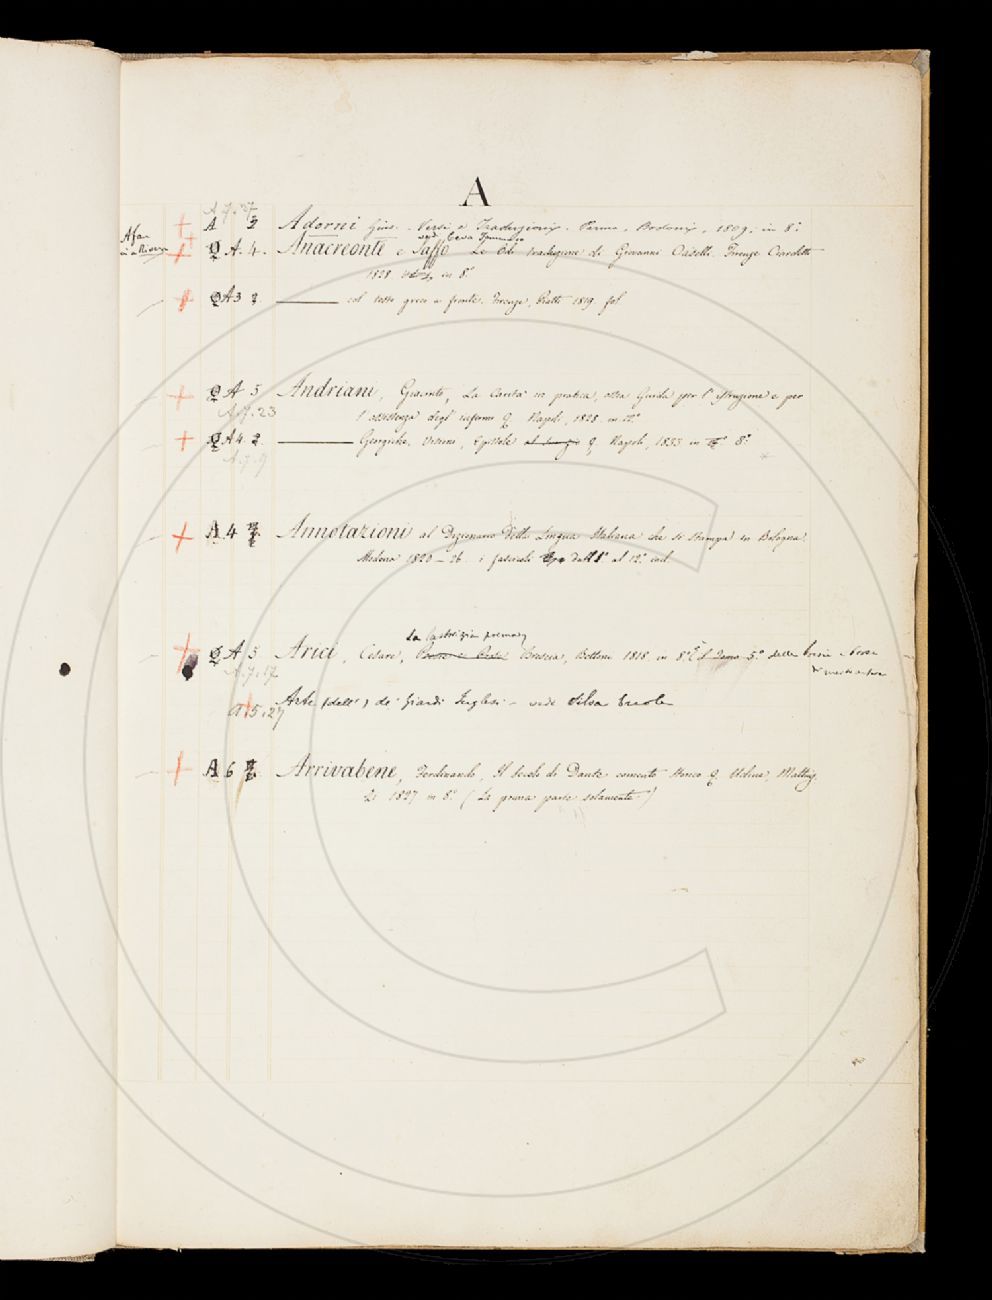 A
A.7.27
A 2 Adorni Gius. Versi e Traduzioni. Parma, Bodoni, 1809. in 8.°
vedi Ceva Tommaso
Q A. 4. Anacreonte e Saffo Le Odi traduzione di Giovanni Caselli. Firenze Ciardetti
1828 in 8.°
Q A 3 col testo greco a fronte. Firenze, Piatti 1819. fol
Q A 5 Andriani, Giacinto, La Carità in pratica, ossia Guida per l'istruzione e per
A.7.23
l'assistenza degl' infermi Q. Napoli, 1828. in 12.°
Q A 4 2 Georgiche, Versioni, Epistole Q. Napoli, 1833 in 8.°
A.7.9
A 4 Annotazioni al Dizionario della Lingua Italiana che si stampa in Bologna.
Modena 1820-26. i fascicoli dall' 1.° al 12.° incl.
La Pastorizia poema
Q A 5 Arici, Cesare, Brescia, Bettoni 1818. in 8.° È il Tomo 5.° delle Poesie e Prose
A.7.17
Arte (dell') de' Giardi Inglesi - vedi Silva Ercole
A 5.27
A 6 Arrivabene, Ferdinando, Il Secolo di Dante comento storico Q. Udine, Mattiuz
zi 1827 in 8.° (La prima parte solamente)